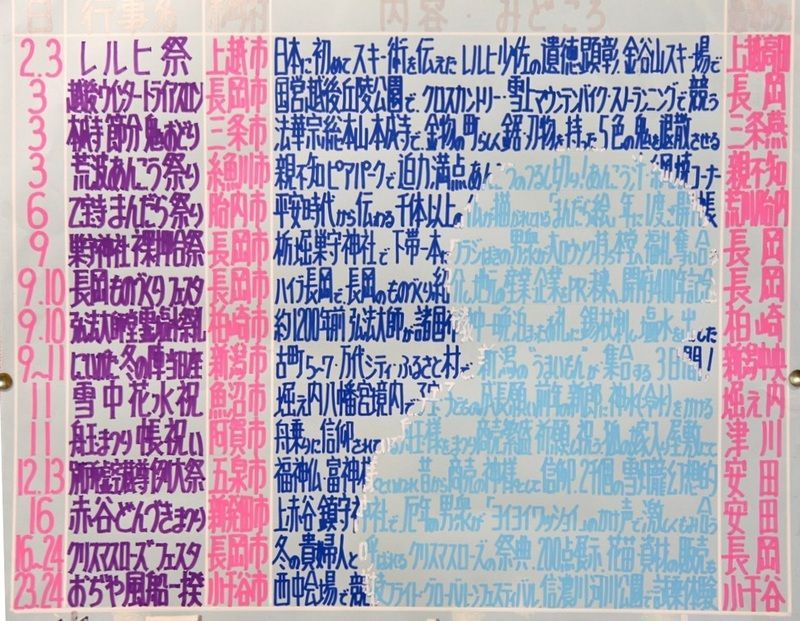 日 行事名 内容 みどころ
2.3 レルヒ祭 上越市 日本に初めてスキー術を伝えたレルヒ少佐の遺徳顕彰。金谷山スキー場で 上越高田
3 越後ウインタートライアスロン 長岡市 国営越後丘陵公園で、クロスカントリー・雪上マウンテンバイク・ストランニングで競う 長岡
3 本成寺節分鬼おどり 三条市 法華宗総本山本成寺で、金物の町らしく鋸・刃物を持った5色の鬼を退散させる 三条燕
3 荒波あんこう祭り 糸魚川市 親不知ピアパークで迫力満点あんこうのつるし切り!あんこう汁 コーナー 親不知
6 乙宝寺まんだら祭り 胎内市 平安時代から伝わる千体以上の仏が描かれているまんだら絵、年に1度 開帳 荒川胎内
9 巣守神社裸押合祭 長岡市 栃堀巣守神社で下帯一本 男衆が 福札奪い合 長岡
9.10 長岡ものづくりフェスタ 長岡市 ハイブ長岡で長岡のものづくり紹介、地元の産業企業をPR 開府400年記念 長岡
9.10 弘法大師堂霊塩水祭礼 柏崎市 約1200年前弘法大師が諸国行脚中一晩泊ったお礼に錫杖刺し塩水を出した 柏崎
9〜11 にいがた冬の陣当日座 新潟市 古町5〜7・万代シティ・ふるさと村で新潟の"うまいもん"が集合する3日間! 新潟中央
11 雪中花水祝 魚沼市 堀之内八幡宮境内で子宝 前年の新郎に神水(冷水)をかける 堀之内
11 舟玉まつり 帳祝い 阿賀市 舟乗りに信仰されている舟玉様をまつり商売繁盛祈願と祝う 狐の嫁入り屋敷にて 津川
12.13 五泉市 福神仏・富神様といわれ昔から商売の神様として信仰。2千個の雪灯籠幻想的 安田
16 赤谷どんつきまつり 新発田市 上赤谷鎮守社で厄年の男衆が「ヨイヨイワッショイ」のかけ声で激しくもみ合う 安田
16〜24 クリスマスローズフェスタ 長岡市 冬の貴婦人と呼ばれるクリスマスローズの祭典。200点展示、花苗・資材の販売も 長岡
23.24 おぢや風船一揆 小千谷市 西中会場で競技フライト・グローバルーンフェスティバル、信濃川河川公園で試乗体験 小千谷